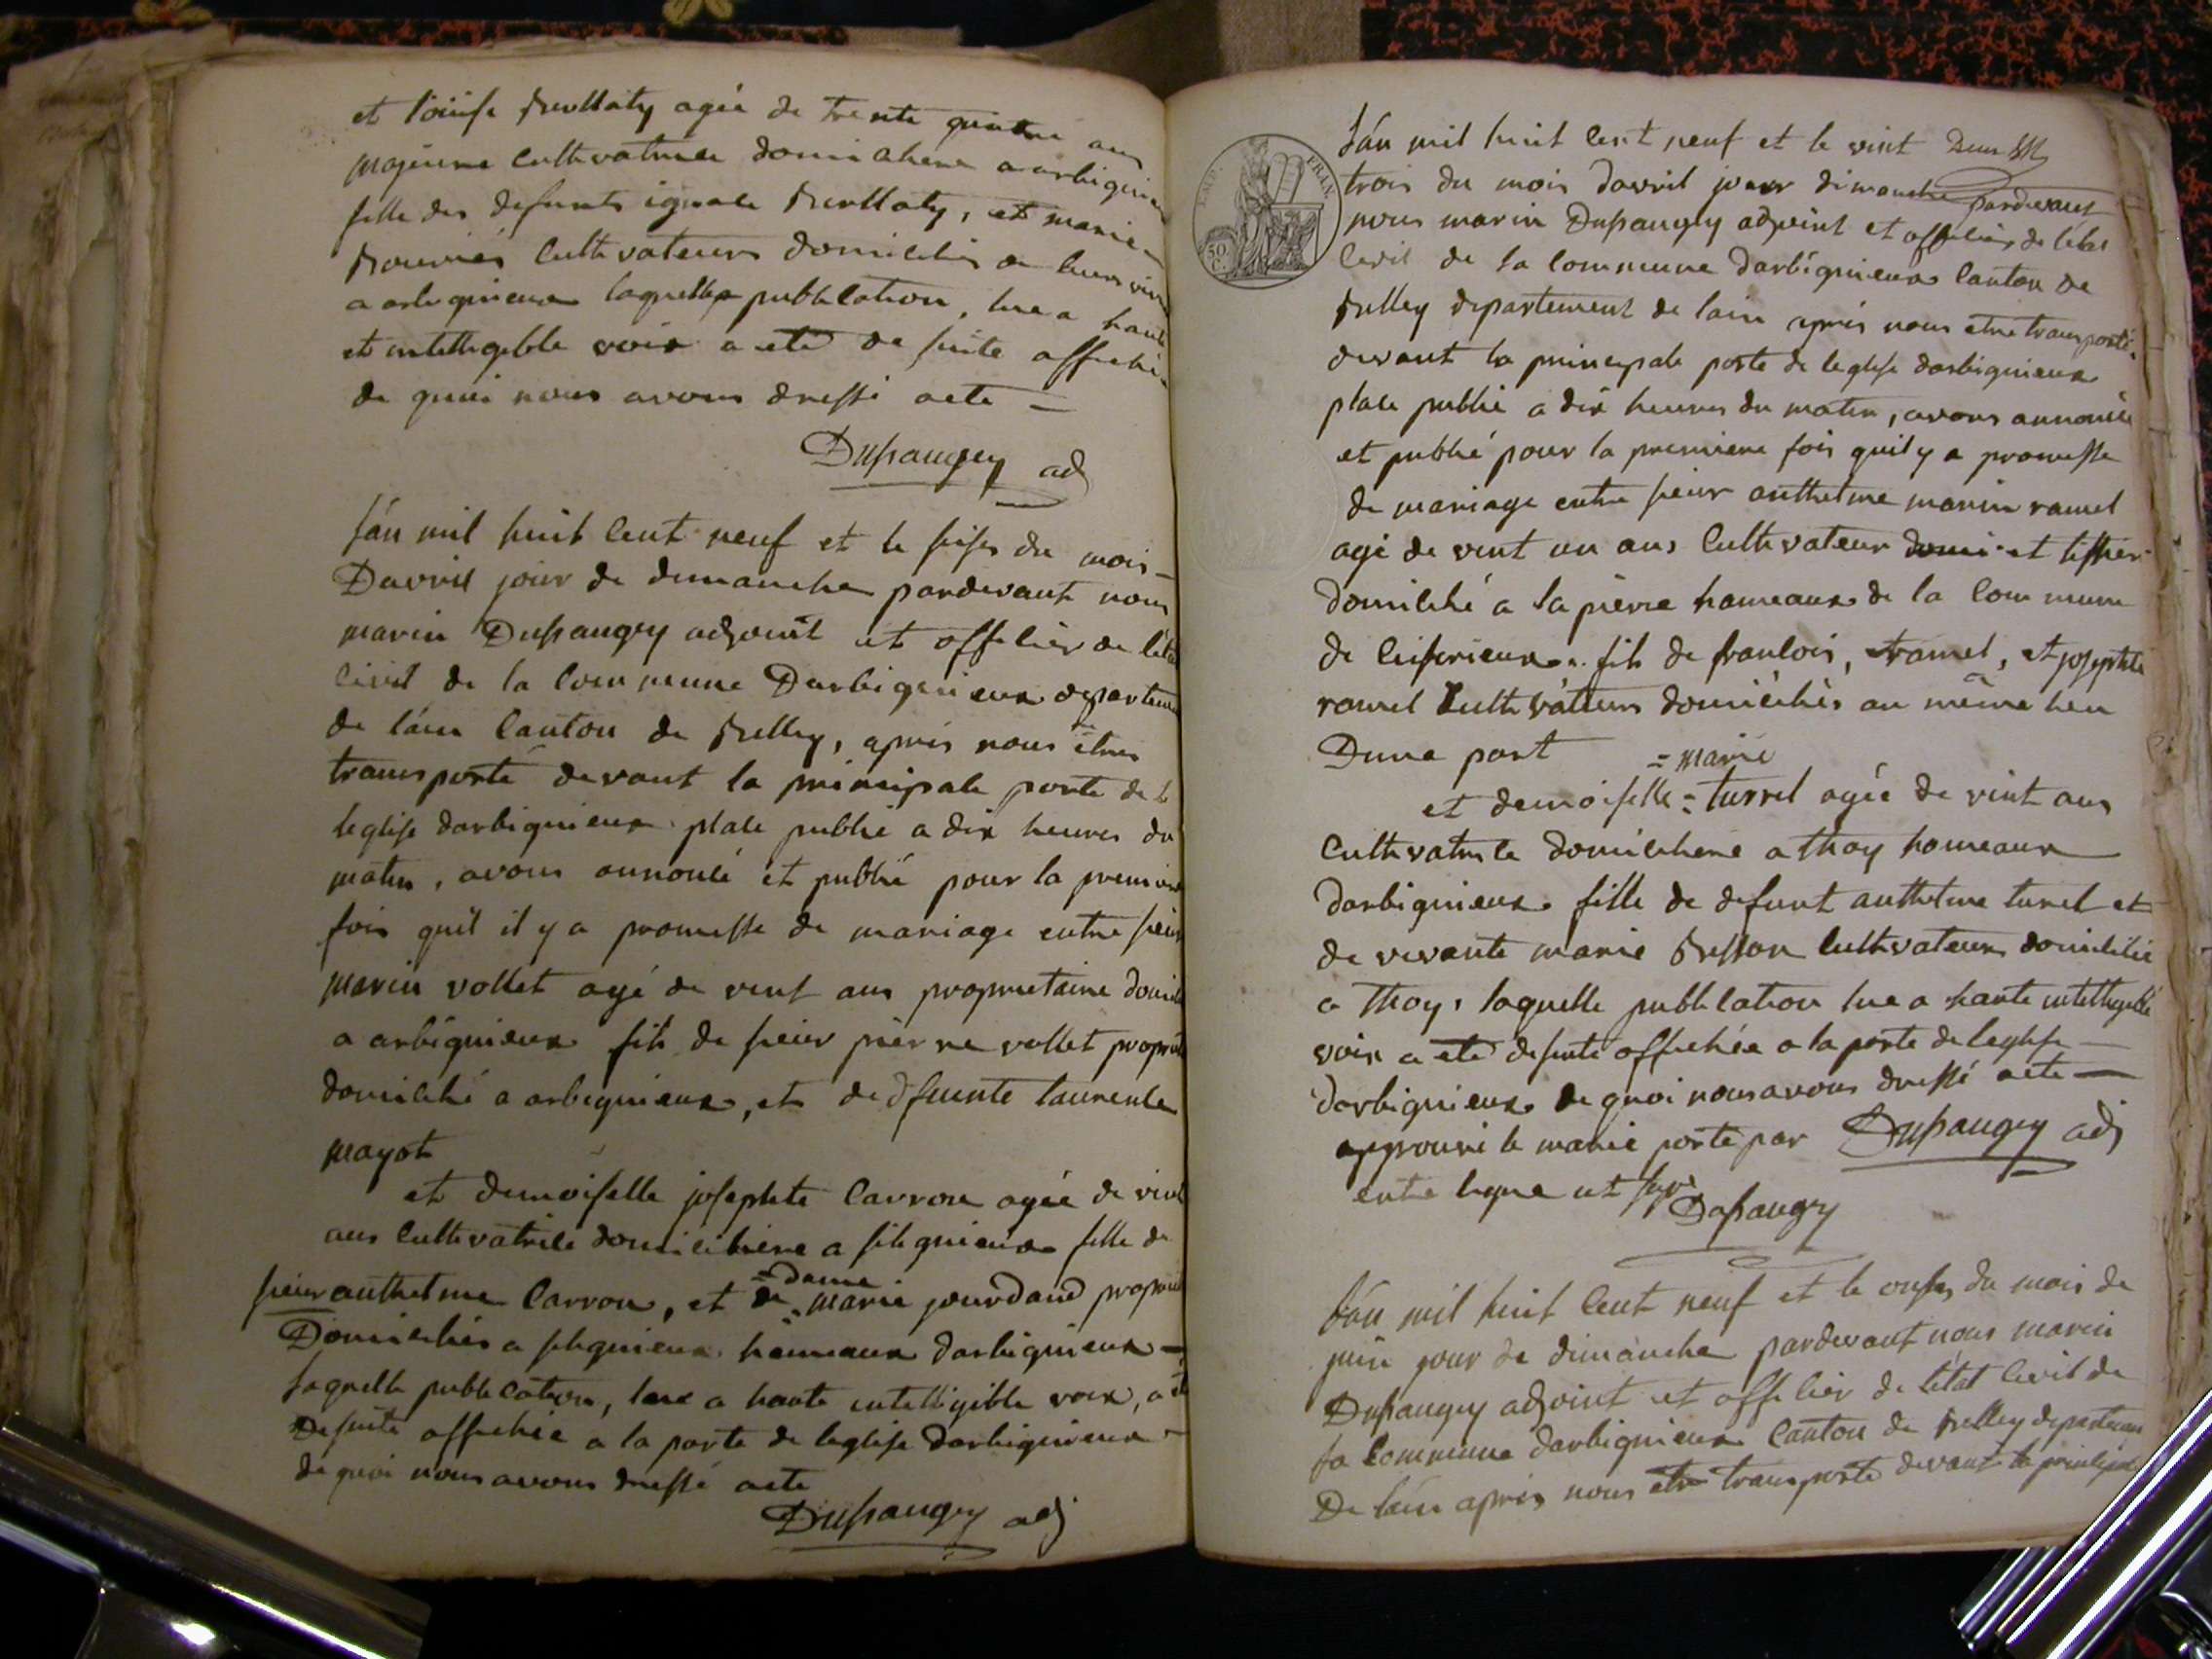 et loüise Berlloty agée de trente quatre ans
majeure cultivatrice domiciliere a arbignieu
fille des defunts ignace Berlloty, et marie
Bouvier cultivateurs domicilies de leur viva
a arbignieux laquelle publication, lue a haute
et intelligeble voix a eté de suite affichée
de quoi nous avons dressé acte =
Dupaugey adj
l'án mil huit cent neuf et le seise du mois
Davril jour de dimanche pardevant nous
marin Dupaugey adjoint et officier de l'éta
civil de la commune Darbignieux departeme
de l'áin canton de Belley, aprés nous étres
transporté devant la principale porte de l
leglise darbignieux place publié a dix heures du
matin, avons annoncé et publié pour la premiere
fois quil il y a promesse de mariage entre sieur
marin vollet agé de vint ans proprietaire domici
a arbignieux fils de sieur pierre vollet propriét
domicilié a arbignieux, et de dfeunte laurence
mayot
et demoiselle josephte Carron agée de vint
ans cultivatrice domiciliere a silignieux fille de
sieur anthelme Carron, et de =dame= marie jourdand propriét
Domiciliés a silignieux hameaux darbignieux =
laquelle publication, lue a haute intelligible voix, a été
De suite affichée a la porte de leglise darbignieux =
de quoi nous avons dressé acte
Dupaugey adj
IMP. FRAN.
50 C.
l'án mil huit cent neuf et le vint
trois du mois davril jour dimanche pardevant
nous marin Dupaugey adjoint et officier de létat
civil de la commune darbignieux canton de
Belley departement de lain aprés nous etre transporté
devant la principale porte de leglise darbignieux
place publié a dix heures du matin, avons annoncé
et publié pour la premiere fois quil y a promesse
de mariage entre sieur anthelme marin ramel
agé de vint un ans cultivateur domi et tissier
domicilié a la pierre hameaux de la commune
de ceiserieux fils de francois, ramel, et josephte
ramel cultivateurs domiciliés au même lieu
Dune part
et demoiselle =marie= turrel agée de vint ans
cultivatrice domiciliere a thoy hameaux
darbignieux fille de defunt anthelme turrel et
de vivante marie Besson cultivateurs domiciliée
a thoy, laquelle publication lue a haute intelligeble
voix a eté de suite affichée a la porte de leglise
darbignieux de quoi nous avons dressé acte
approuvé le marie porté par Dupaugey adj
entre ligne et
Dupaugey
l'án mil huit cent neuf et le onse du mois de
juin jour de dimanche pardevant nous marin
Dupaugey adjoint et officier de létat civil de
la commune darbignieux canton de Belley departeme
De láin aprés nous etre transporté devant la principale